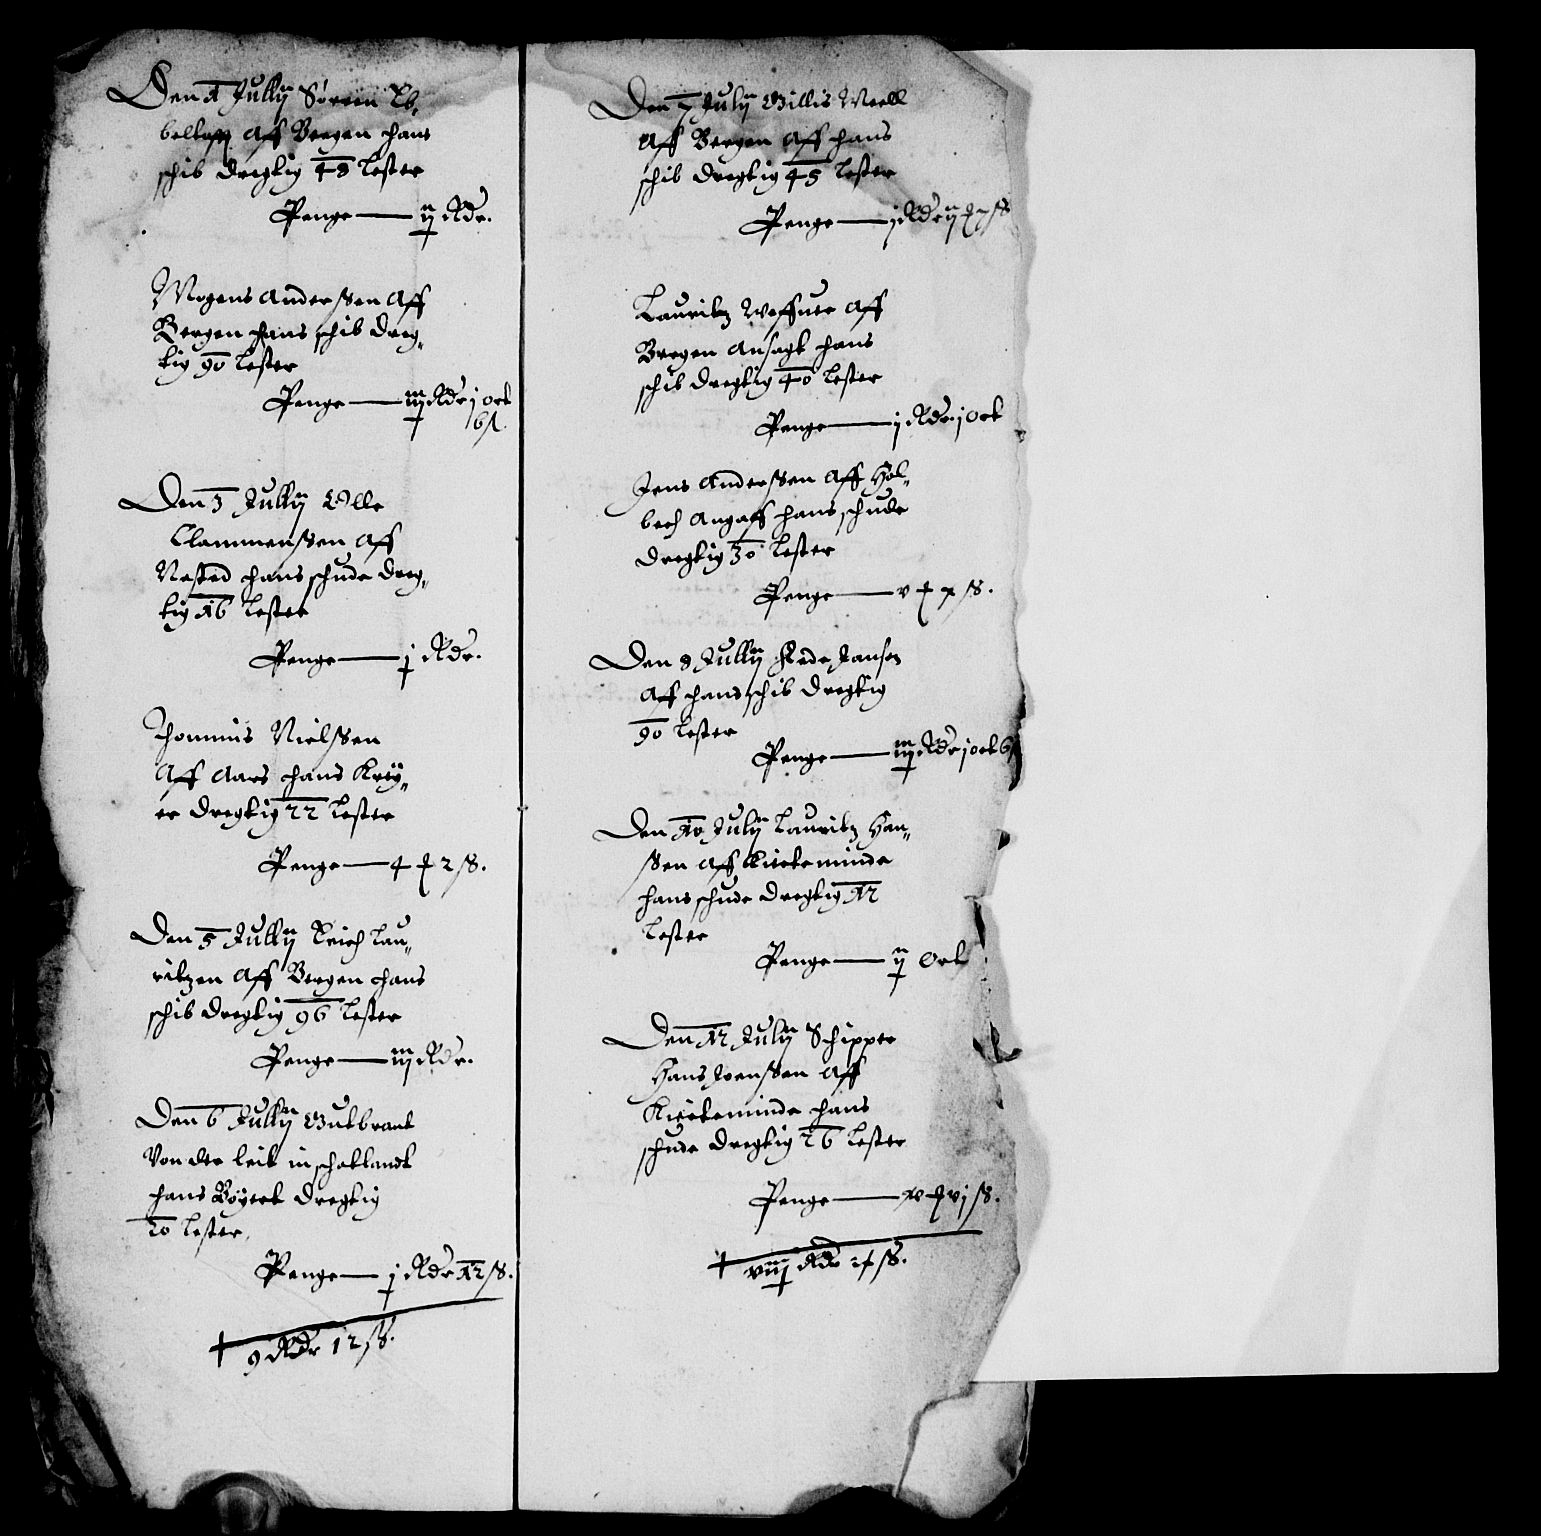 Den 1 Jullij Sørren Eb,,
belløs Aff Bergen hans
schib dregtig 48 Lester
Penge — ij Rdr.
Mogens Anderßen Aff
Bergen hans schib dreg,,
tig 90 Lester
Penge — iij Rdr j ort
6 s.
Den 3 Jullij Olle
Clammenßen Aff
Nested hans schude dreg,,
tig 16 Lester
Penge — j Rdr.
Thommis Nielßen
Aff Aars hans Krey,,
er dregtig 22 Lester
Penge — 4 ₰ 2 ß.
Den 5 Jullij Erich Lau,,
ritzen Aff Bergen hans
schib dregtig 96 Lester
Penge — iij Rdr.
Den 6 Jullij Gulbrant
Von der leit in schotlandt
hans Bøyert dregtig
20 Lester,
Penge — j Rdr 12 ß.
9 Rdr 12 ß.
Den 7 Julij Gillis Weell
Aff Bergen Aff hans
schib dregtig 45 Lester
Penge — j Rdr ij ₰ 7 ß
Lauritz Weffuer Aff
Bergen Ansagt hans
schib dregtig 40 Lester
Penge — j Rdr. j Ort
Jens Anderßen Aff Hol,,
bech Angaff hans schude
dregtig 30 Lester
Penge — v ₰ 7 ß.
Den 8 Jullij Fede Jansen
Aff hans schib dregtig
90 Lester
Penge — iij Rdr j ort 6 s
Den 10 Julij Lauritz Han,,
ßen Aff Kierteminde
hans schude dregtig 12
Lester
Penge — ij Ort
Den 12 Julij Schipper
Hans Joenßen Aff
Kierteminde hans
schude dregtig 26 Lester
Penge — xv ₰ vj ß.
viiij Rdr 14 ß.